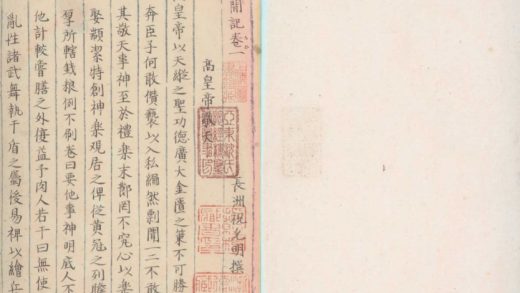 聞記卷一
長洲祝允明撰
高皇帝敬天
皇帝以天縱之聖功德廣大金匱之策不可勝
奔臣子何敢僭褻以入私編然剽聞一二不敢
其敬天事神至於禮樂末節罔不究心以樂
娶顓潔特創神樂觀居之俾從黃冠之列贍
厚所轄錢粮例不刷卷曰要他事神明底人不
他計較嘗膳之外復益予肉人若干曰無使
亂性諸武舞執干盾之屬易裨以繪
亞東沈氏抱經樓鑒賞圖書印